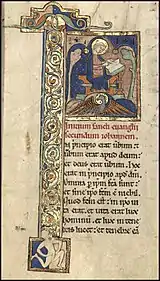 Inicium sancti euangelii
secundum iohannem.
In principio erat uerbum et
uerbum erat apud deum et
deus erat uerbum. Hoc
erat in principio apud deum
omnia p ipsm facta sunt et
sine ipso factum est nichil
Quod factum est in ipso ui
ta erat et uita erat lux
hominum et lux in tene
bris lucet et tenebre eam